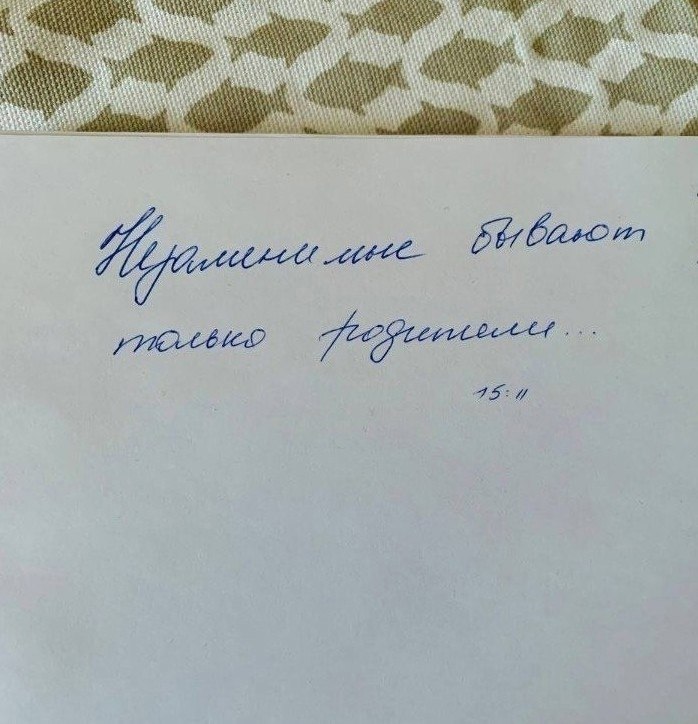 Незаменимые бывают
только родители...
15:11